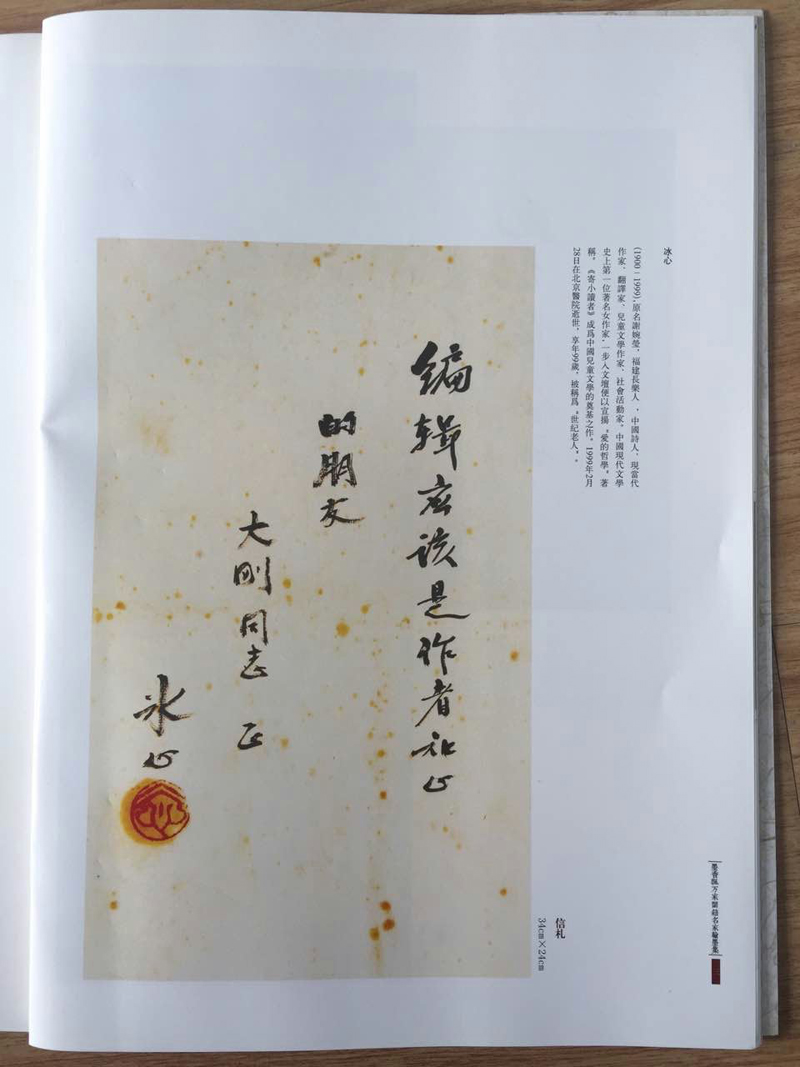 冰心
(1900-1999),原名謝婉瑩,福建長樂人,中國詩人、現當代
作家、翻譯家、兒童文學作家、社會活動家,中國現代文學
史上第一位著名女作家,一步入文壇便以宣揚“愛的哲學”著
稱,《寄小讀者》成爲中國兒童文學的奠基之作。1999年2月
28日在北京醫院逝世,享年99歲,被稱爲“世紀老人”。
编辑应该是作者知心
的朋友
大刚同志 正
冰心
信札
34cm×24cm
墨香飄万家
名家翰墨集